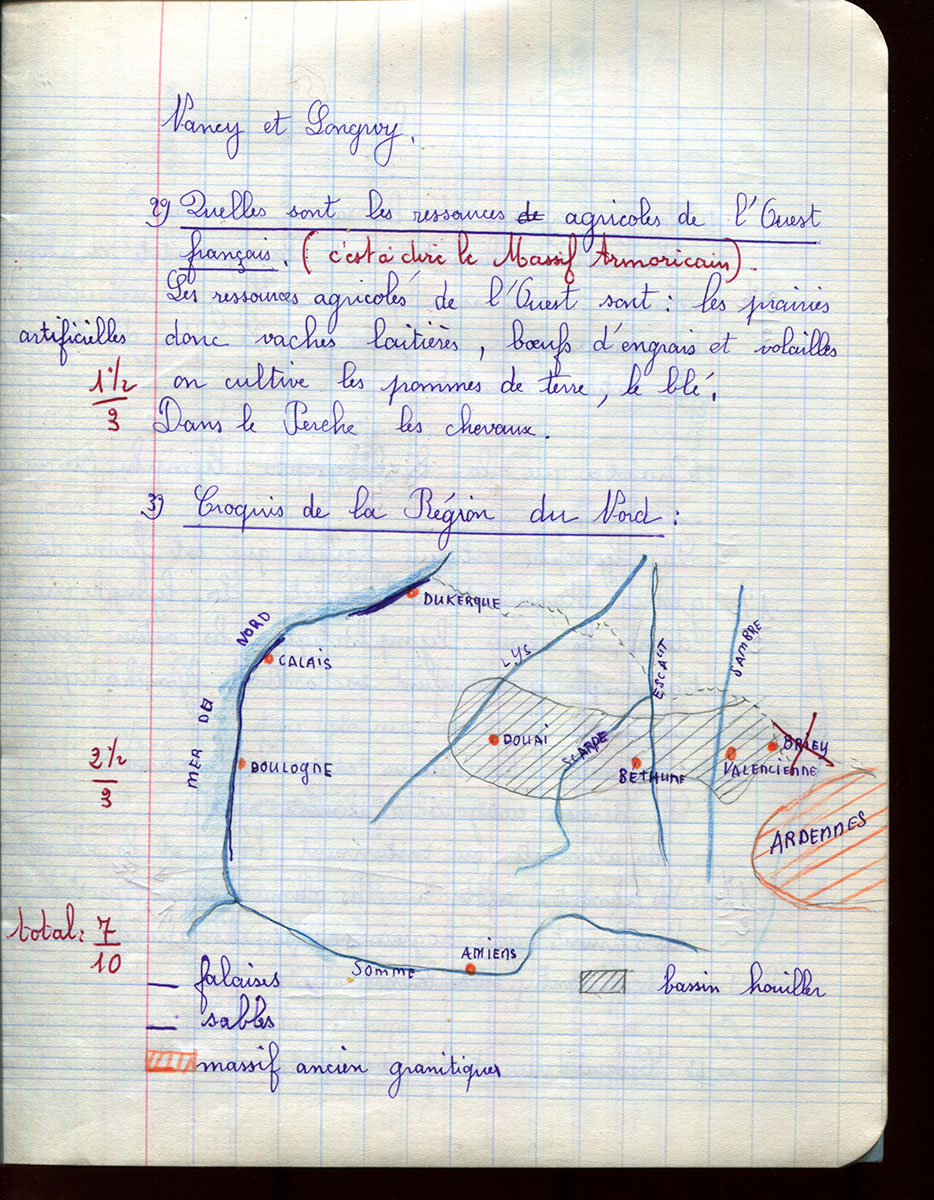 Nancy et Longwy.
2°) Quelles sont les ressources de agricoles de l'Ouest
français. (c'est à dire le Massif Armoricain).
Les ressources agricoles de l'Ouest sont : les prairies
artificielles donc vaches laitières, bœufs d'engrais et volailles
1 1/2
3
on cultive les pommes de terre, le blé.
Dans le Perche les chevaux.
3°) Croquis de la Région du Nord :
DUKERQUE
NORD
CALAIS
LYS
ESCAUT
SAMBRE
MER DU
DOUAI
SCARPE
BRIEY
BOULOGNE
BETHUNE
VALENCIENNE
2 1/2
3
ARDENNES
total : 7
10
AMIENS
SOMME
falaises
bassin houiller
sables
massif ancien granitique